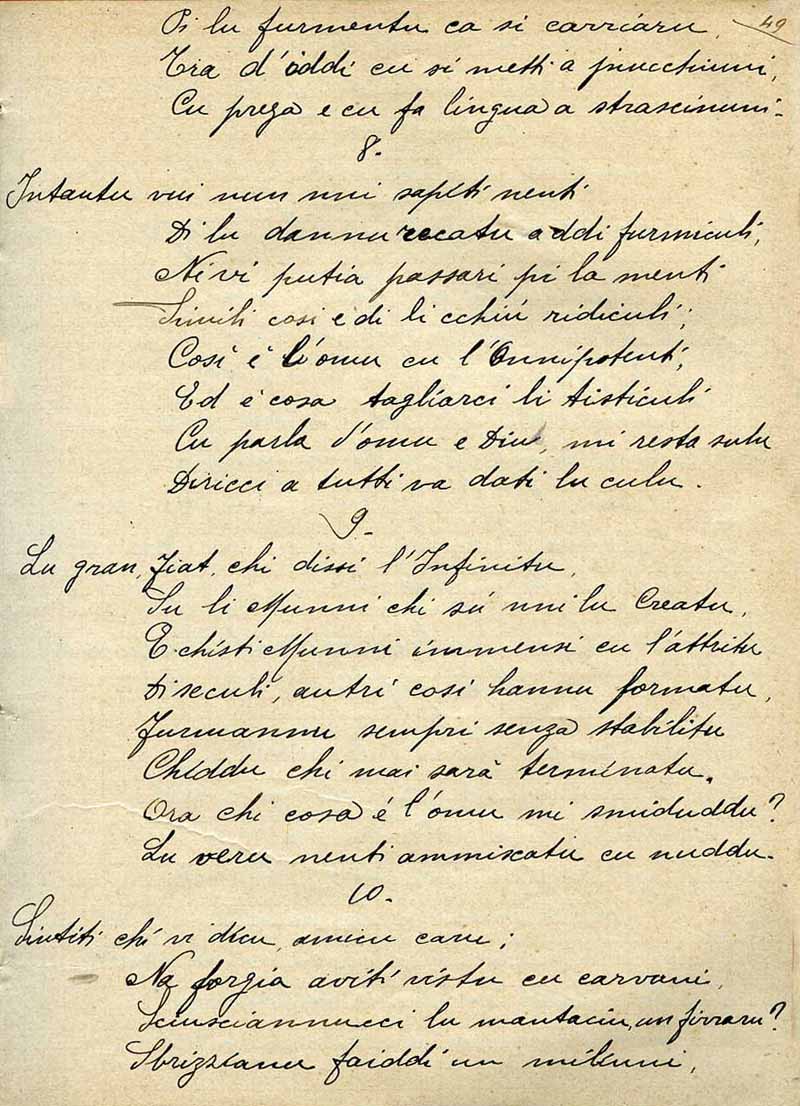 49
Pi lu furmentu ca si carriaru,
Tra d'iddi cu si metti a jinucchiuni,
Cu prega e cu fa lingua a strascinuni.
8.
Intantu vui nun nni sapiti nenti
Di lu dannu recatu a ddi furmiculi,
Nè vi putia passari pi la menti
Simili cosi è di li cchiú ridiculi;
Cosí è l'omu cu l'Onnipotenti,
Ed è cosa tagliarci li tisticuli
Cu parla d'omu e Diu, mi resta sulu
Diricci a tutti va dati lu culu.
9.
Lu gran, fiat, chi dissi l'Infinitu,
Su li Munni chi sú nni lu Creatu,
E chisti Munni immensi cu l'attritu
Di seculi, autri cosi hannu formatu,
Furmannu sempri senza stabilitu
Chiddu chi mai sarà terminatu.
Ora chi cosa é l'omu mi smiduddu?
Lu veru nenti ammiscatu cu nuddu.
10.
Sintiti chi vi dicu, amicu caru;
Na forgia aviti vistu cu carvuni,
Sciusciannucci lu mantaciu, un firraru?
Sbrizzianu faiddi un miliuni,